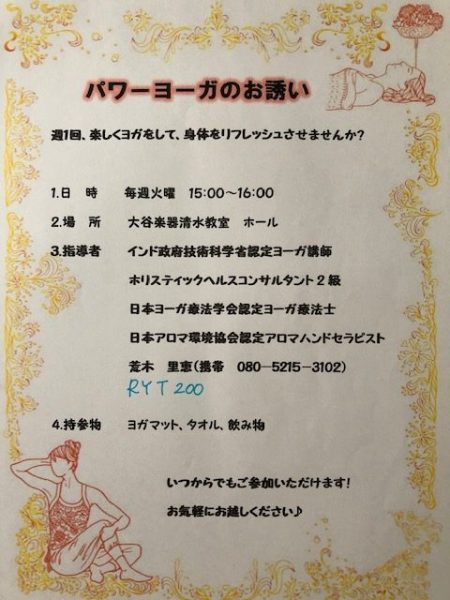 パワーヨーガのお誘い
週1回、楽しくヨガをして、身体をリフレッシュさせませんか?
1.日 時 毎週火曜 15:00~16:00
2.場 所 大谷楽器清水教室 ホール
3.指導者 インド政府技術科学省認定ヨーガ講師
ホリスティックヘルスコンサルタント2級
日本ヨーガ療法学会認定ヨーガ療法士
日本アロマ環境協会認定アロマハンドセラピスト
荒木 里恵(携帯 080-5215-3102)
RYT 200
4.持参物 ヨガマット、タオル、飲み物
いつからでもご参加いただけます!
お気軽にお越しください♪